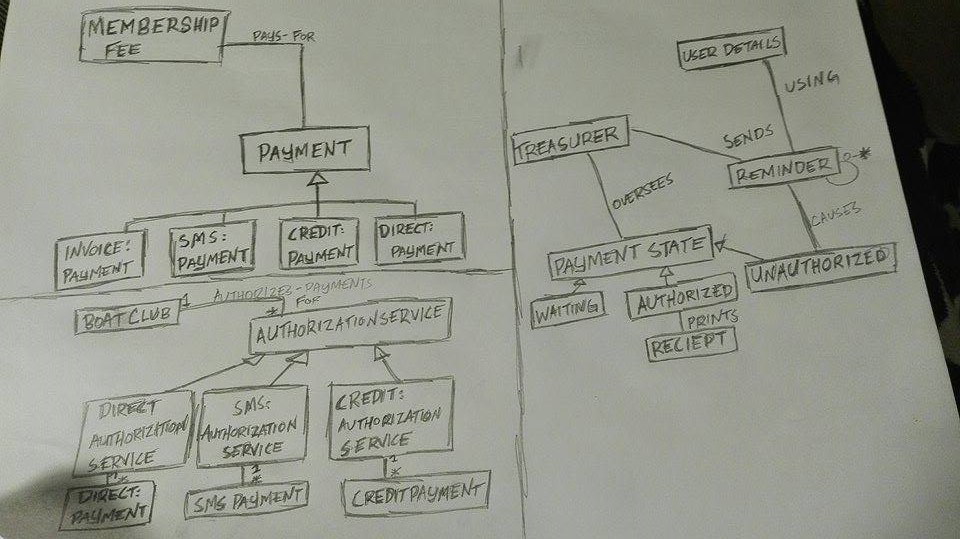 MEMBERSHIP
FEE
PAYS-FOR
PAYMENT
INVOICE:
PAYMENT
SMS:
PAYMENT
CREDIT:
PAYMENT
DIRECT:
PAYMENT
BOAT CLUB
1
AUTHORIZES-PAYMENTS
FOR
*
AUTHORIZATIONSERVICE
DIRECT
AUTHORIZATION
SERVICE
SMS:
AUTHORIZATION
SERVICE
CREDIT:
AUTHORIZATION
SERVICE
1
*
DIRECT:
PAYMENT
1
*
SMS PAYMENT
1
*
CREDITPAYMENT
USER DETAILS
USING
TREASURER
SENDS
REMINDER
*
OVERSEES
CAUSES
PAYMENT STATE
UNAUTHORIZED
WAITING
AUTHORIZED
PRINTS
RECIEPT